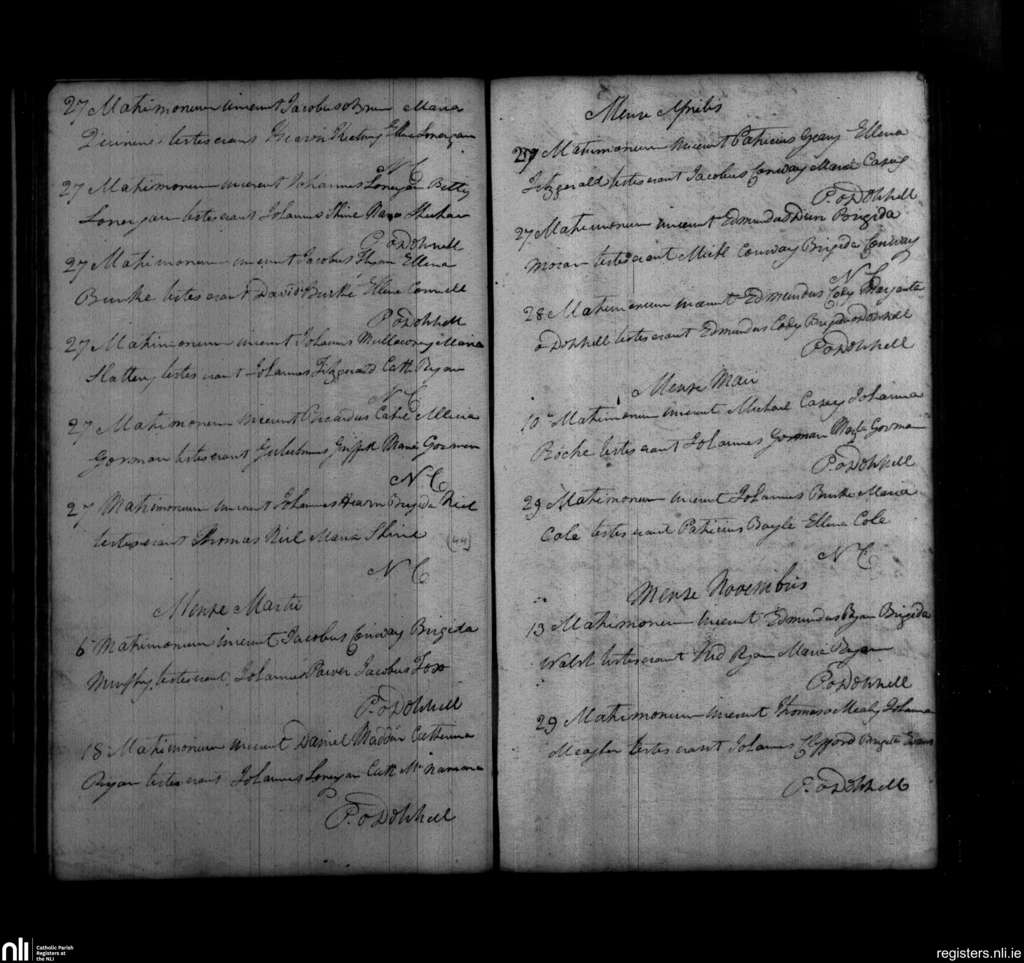 27 Matrimonium inierunt Jacobus oBrien Maria
testes erant Ellena Lonergan
N C
27 Matrimonium inierunt Johannes Lonergan Betty
Lonergan testes erant Johannes Shine Sheehan
P. oDonnell
27 Matrimonium inierunt Jacobus Ellena
Burke testes erant David Burke Ellena Connell
P. oDonnell
27 Matrimonium inierunt Johannes Mullowney Maria
Slattery testes erant Johannes Fitzgerald Cath Ryan
N C
27 Matrimonium inierunt Ricardus Cahil Ellena
Gorman testes erant Gulielmus Griffith Maria Gorman
N C
27 Matrimonium inierunt Johannes Hearn Brigida Niel
testes erant Thomas Niel Maria Shine (44)
N C
Mense Martii
6 Matrimonium inierunt Jacobus Conway Brigida
Murphy testes erant Johannes Power Jacobus Fox
P. oDonnell
18 Matrimonium inierunt Daniel Maddin Catherina
Ryan testes erant Johannes Lonergan Cath McNamara
P. oDonnell
Mense Aprilis
Matrimonium inierunt Patricius Geary Ellena
Fitzgerald testes erant Jacobus Conway Maria Casey
P. oDonnell
27 Matrimonium inierunt Edmundus Brigida
Moran testes erant Michl Conway Brigida Conway
N C
28 Matrimonium inierunt Edmundus Cody Margarita
oDonnell testes erant Edmundus Cody Brigida oDonnell
P. oDonnell
Mense Maii
10 Matrimonium inierunt Michael Casey Johanna
Roche testes erant Johannes Gorman Gorman
P. oDonnell
29 Matrimonium inierunt Johannes Burke Maria
Cole testes erant Patricius Bayle Ellena Cole
N C
Mense Novembris
13 Matrimonium inierunt Edmundus Ryan Brigida
Walsh testes erant Ryan Maria Ryan
P. oDonnell
29 Matrimonium inierunt Thomas oMealy Johanna
Meagher testes erant Johannes Clifford Brigida
P. oDonnell
nli
Catholic Parish
Registers at
the NLI
registers.nli.ie